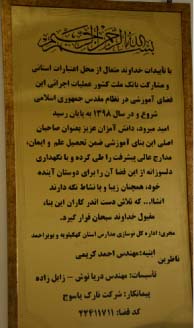 بسم الله الرحمن الرحیم
با تأییدات خداوند متعال از محل اعتبارات استانی
و مشارکت بانک ملت کشور عملیات اجرائی این
فضای آموزشی در نظام مقدس جمهوری اسلامی
شروع و در سال ۱۳۹۸ به پایان رسید
امید میرود، دانش آموزان عزیز بعنوان صاحبان
اصلی این بنای آموزشی ضمن تحصیل علم و ایمان،
مدارج عالی پیشرفت را طی کرده و با نگهداری
دلسوزانه از این فضا آن را برای دوستان آینده
خود، همچنان زیبا و با نشاط نگه دارند
انشاا... که تلاش دست اندر کاران این بنا،
مقبول خداوند سبحان قرار گیرد.
مجری: اداره کل نوسازی مدارس استان کهگیلویه و بویراحمد
ناظرین
ابنیه: مهندس احمد کریمی
تأسیسات: مهندس دریا نوش - زابل زاده
پیمانکار: شرکت نارک یاسوج
کد فضا: ۲۲۳۱۱۷۱۱